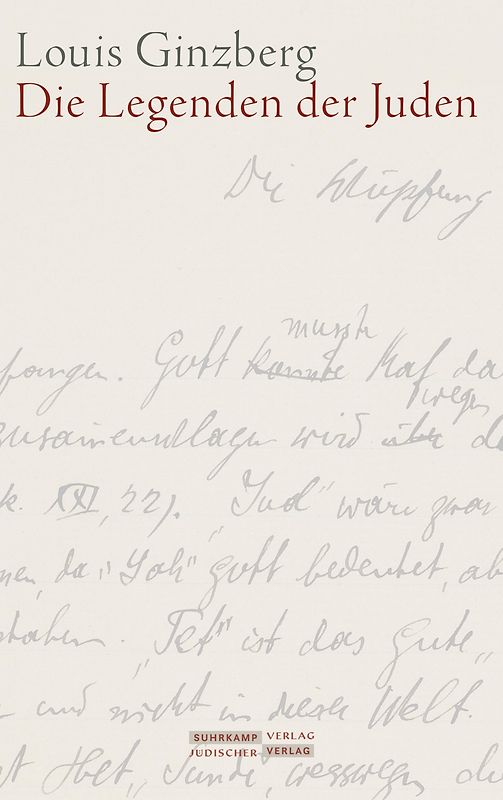 Louis Ginzberg
Die Legenden der Juden
Die
Gott konnte musste Kaf da
wird über wegen
XXI, 22). „Jud“ wäre zwar
da „Yah“ Gott bedeutet, ab
„Tet“ ist das Gute,
und nicht in dieser Welt.
SUHRKAMP VERLAG
JÜDISCHER VERLAG
Het, „Sünde“, wesswegen di